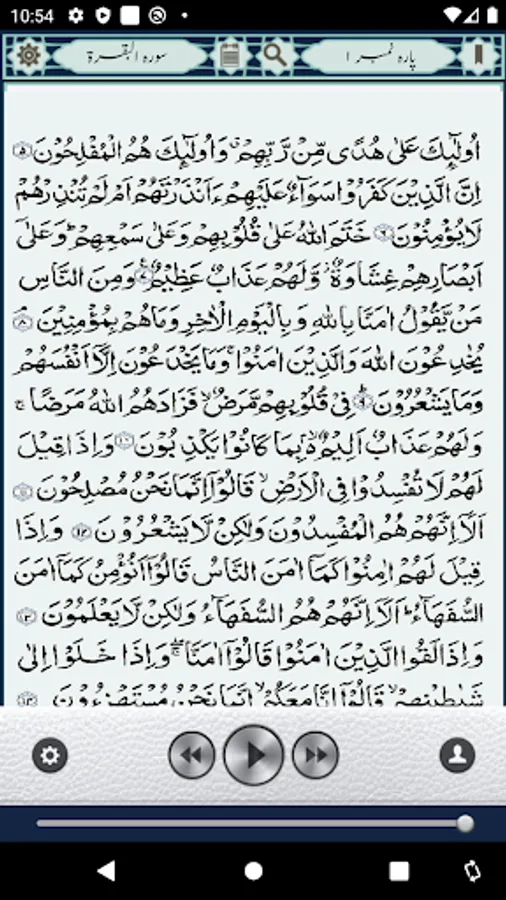 10:54
سورہ البقرة
پارہ نمبر ۱
اُولٰٓئِكَ عَلٰى هُدًى مِّنْ رَّبِّهِمْ ۙ وَاُولٰٓئِكَ هُمُ الْمُفْلِحُوْنَ ۵
اِنَّ الَّذِيْنَ كَفَرُوْا سَوَآءٌ عَلَيْهِمْ ءَاَنْذَرْتَهُمْ اَمْ لَمْ تُنْذِرْهُمْ
لَا يُؤْمِنُوْنَ ۶ خَتَمَ اللّٰهُ عَلٰى قُلُوْبِهِمْ وَعَلٰى سَمْعِهِمْ ؕ وَعَلٰٓى
اَبْصَارِهِمْ غِشَاوَةٌ ۫ وَّلَهُمْ عَذَابٌ عَظِيْمٌ ۷ وَمِنَ النَّاسِ
مَنْ يَّقُوْلُ اٰمَنَّا بِاللّٰهِ وَبِالْيَوْمِ الْاٰخِرِ وَمَا هُمْ بِمُؤْمِنِيْنَ ۸
يُخٰدِعُوْنَ اللّٰهَ وَالَّذِيْنَ اٰمَنُوْا ۚ وَمَا يَخْدَعُوْنَ اِلَّاۤ اَنْفُسَهُمْ
وَمَا يَشْعُرُوْنَ ۹ فِىْ قُلُوْبِهِمْ مَّرَضٌ ۙ فَزَادَهُمُ اللّٰهُ مَرَضًا ۚ
وَلَهُمْ عَذَابٌ اَلِيْمٌ ۢ ۙ بِمَا كَانُوْا يَكْذِبُوْنَ ۱۰ وَاِذَا قِيْلَ
لَهُمْ لَا تُفْسِدُوْا فِى الْاَرْضِ ۙ قَالُوْۤا اِنَّمَا نَحْنُ مُصْلِحُوْنَ ۱۱
اَلَاۤ اِنَّهُمْ هُمُ الْمُفْسِدُوْنَ وَلٰكِنْ لَّا يَشْعُرُوْنَ ۱۲ وَاِذَا
قِيْلَ لَهُمْ اٰمِنُوْا كَمَاۤ اٰمَنَ النَّاسُ قَالُوْۤا اَنُؤْمِنُ كَمَاۤ اٰمَنَ
السُّفَهَآءُ ؕ اَلَاۤ اِنَّهُمْ هُمُ السُّفَهَآءُ وَلٰكِنْ لَّا يَعْلَمُوْنَ ۱۳
وَاِذَا لَقُوا الَّذِيْنَ اٰمَنُوْا قَالُوْۤا اٰمَنَّا ۖۚ وَاِذَا خَلَوْا اِلٰى
شَيٰطِيْنِهِمْ ۙ قَالُوْۤا اِنَّا مَعَكُمْ ۙ اِنَّمَا نَحْنُ مُسْتَهْزِءُوْنَ ۱۴